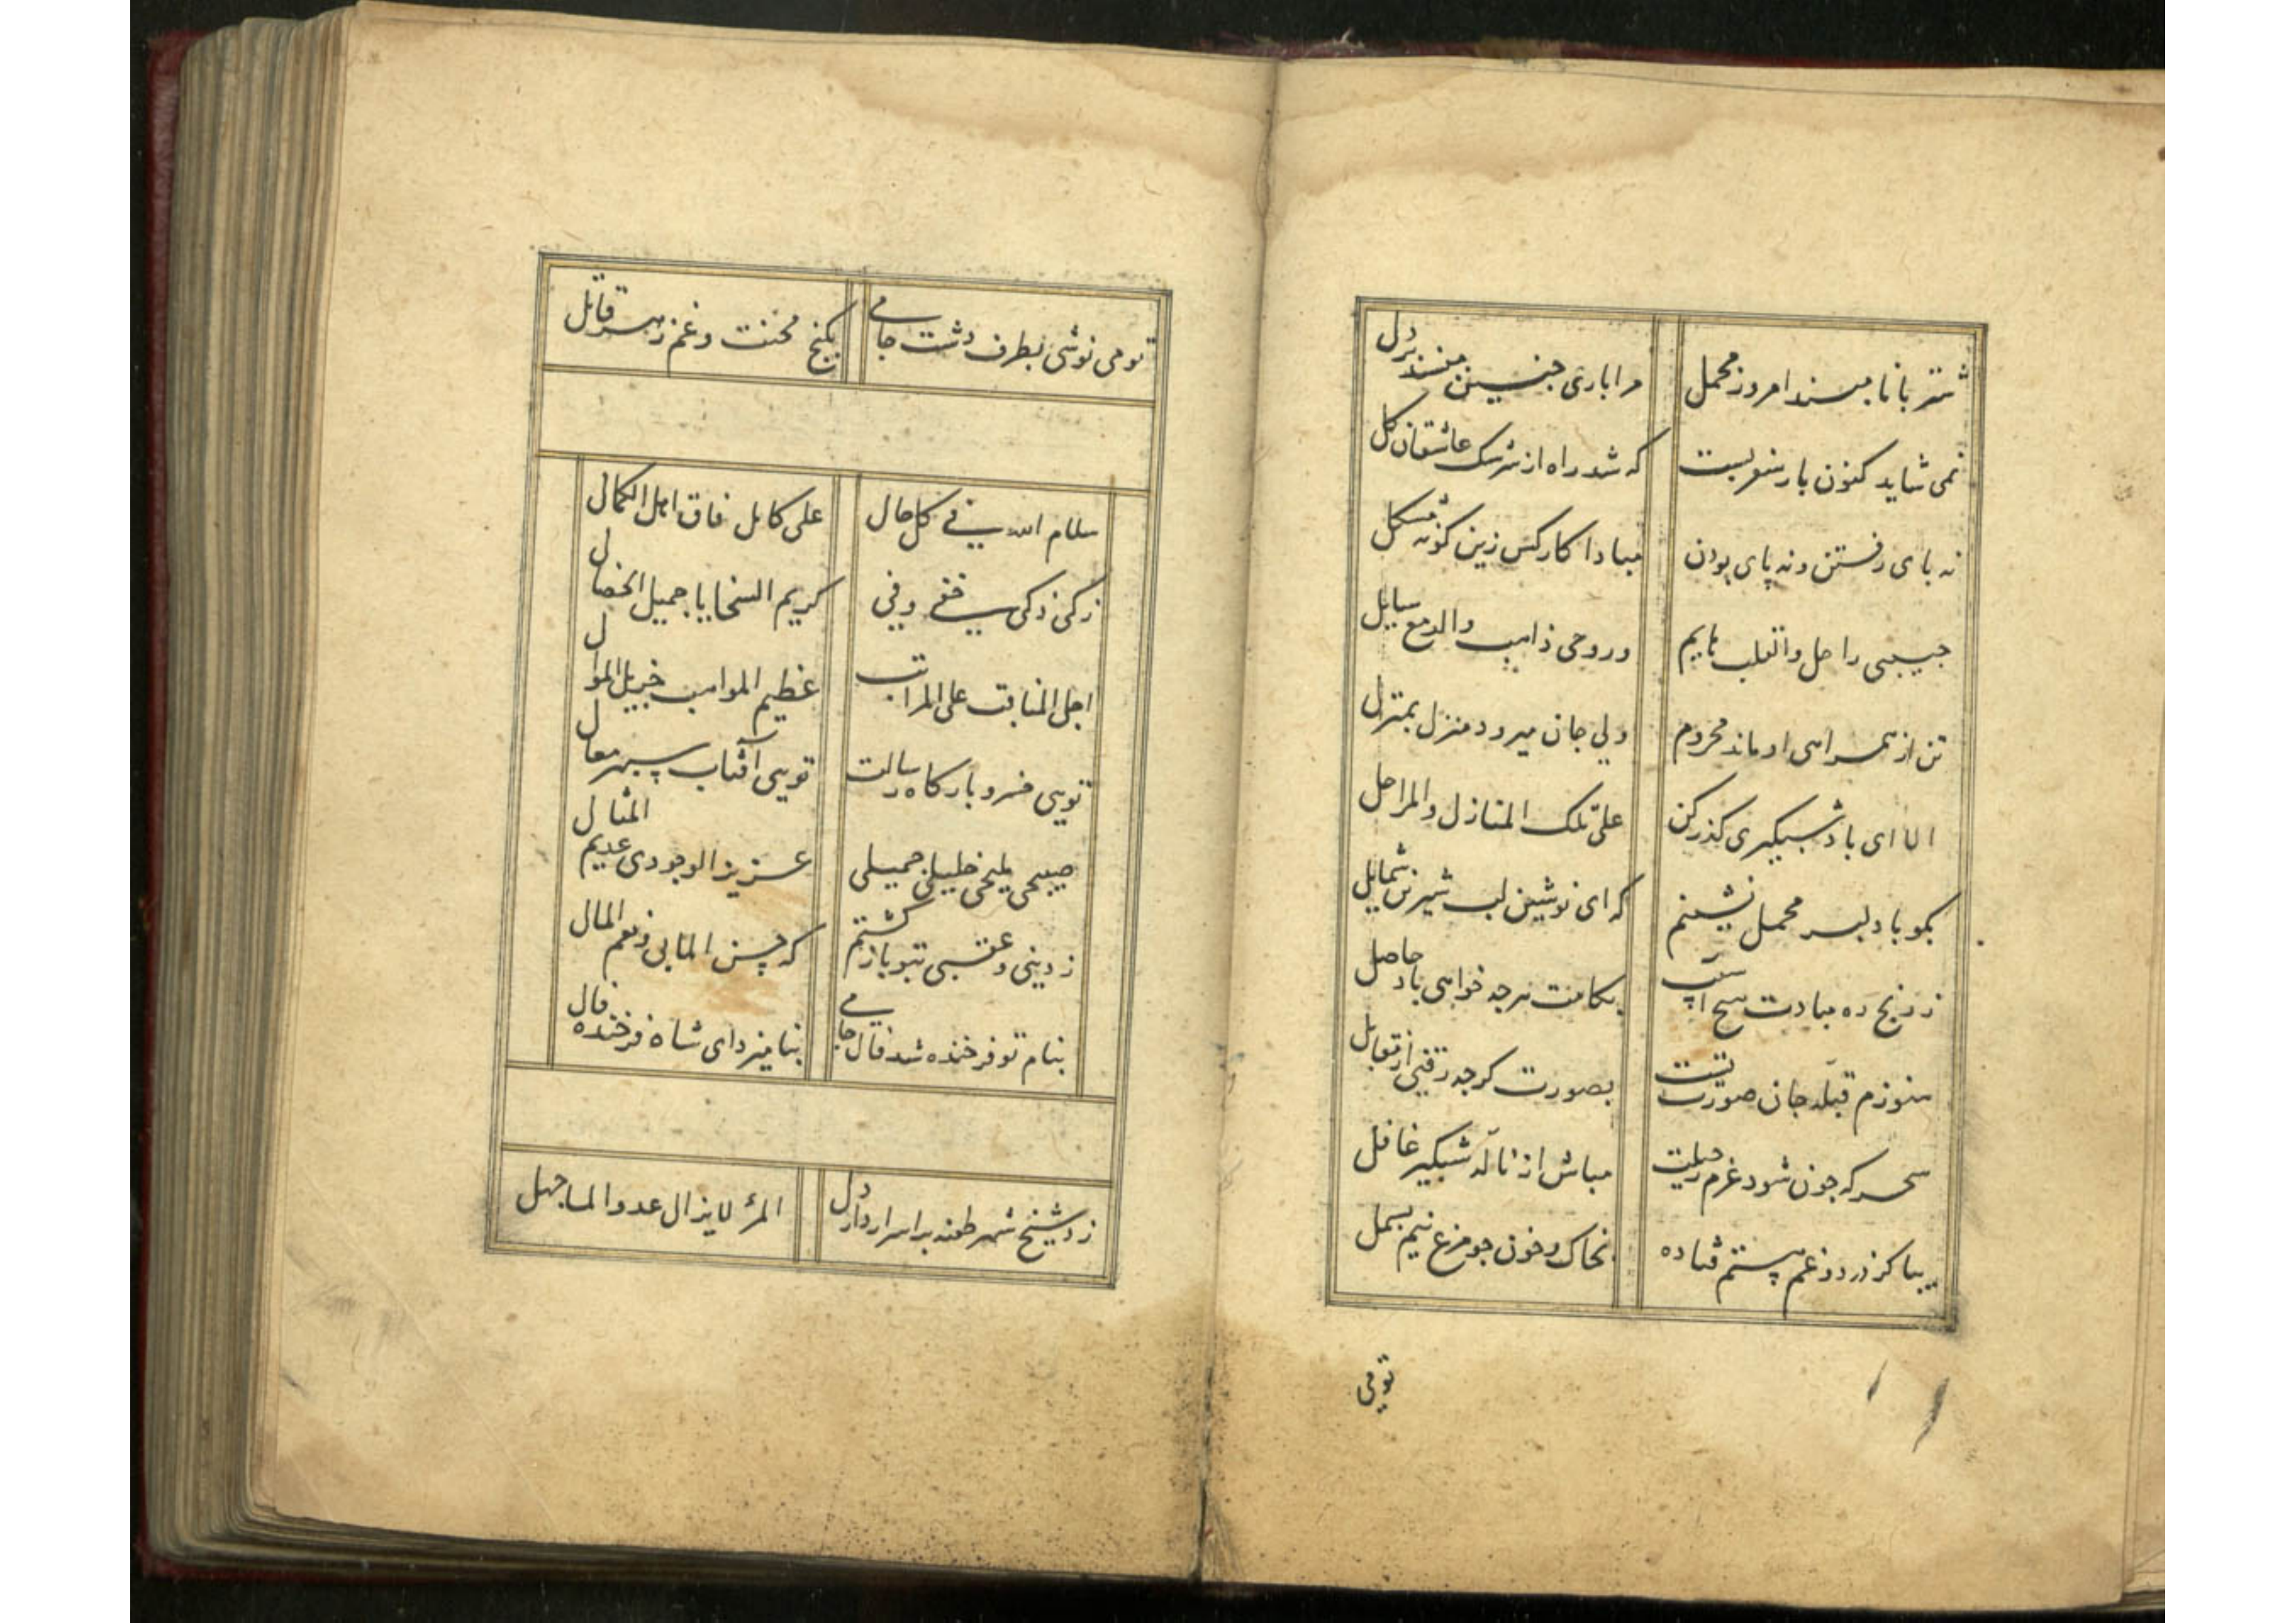 شتربانا مبند امروز محمل مرا باری جنین مپسند بر دل
نمی شاید کنون بار سفر بست که شد راه از سرشک عاشقان کل
نه پای رفتن و نه پای بودن مبادا کار کس زین کونه مشکل
حبیبی راحل والقلب هایم وروحی ذاهب والدمع سایل
تن از همراهی او ماند محروم ولی جان میرود منزل بمنزل
الا ای باد شبکیری کذر کن علی تلک المنازل والمراحل
بکو با دلبر محمل نشینم که ای نوشین لب شیرین شمایل
ز رنج ره مبادت هیچ آسیب بکامت هرجه خواهی باد حاصل
هنوزم قبلهٔ جان صورت تست بصورت کرجه رفتی از مقابل
سحرکه جون شود عزم رحیلت مباش از نالهٔ شبکیر غافل
بیا کز درد و غم هستم فتاده بخاک و خون جو مرغ نیم بسمل
تو می
تو می نوشی بطرف دشت جامی بکنج محنت و غم زهر قاتل
سلام الله فی کل حال علی کامل فاق اهل الکمال
زکی ذکی صفی وفی کریم السجایا جمیل الخصال
اجل المناقب علی المراتب عظیم المواهب جزیل النوال
تویی خسرو بارکاه رسالت تویی آفتاب سپهر معال
صبیحی ملیحی خلیلی جمیلی عزیز الوجودی عدیم المثال
ز دینی و عقبی بتو باز کشتم که حسن المابی و نعم المال
بنام تو فرخنده شد فال جامی بنامیزد ای شاه فرخنده فال
زد شیخ شهر طعنه بر اسرار دار دل المرء لا یزال عدوا لما جهل